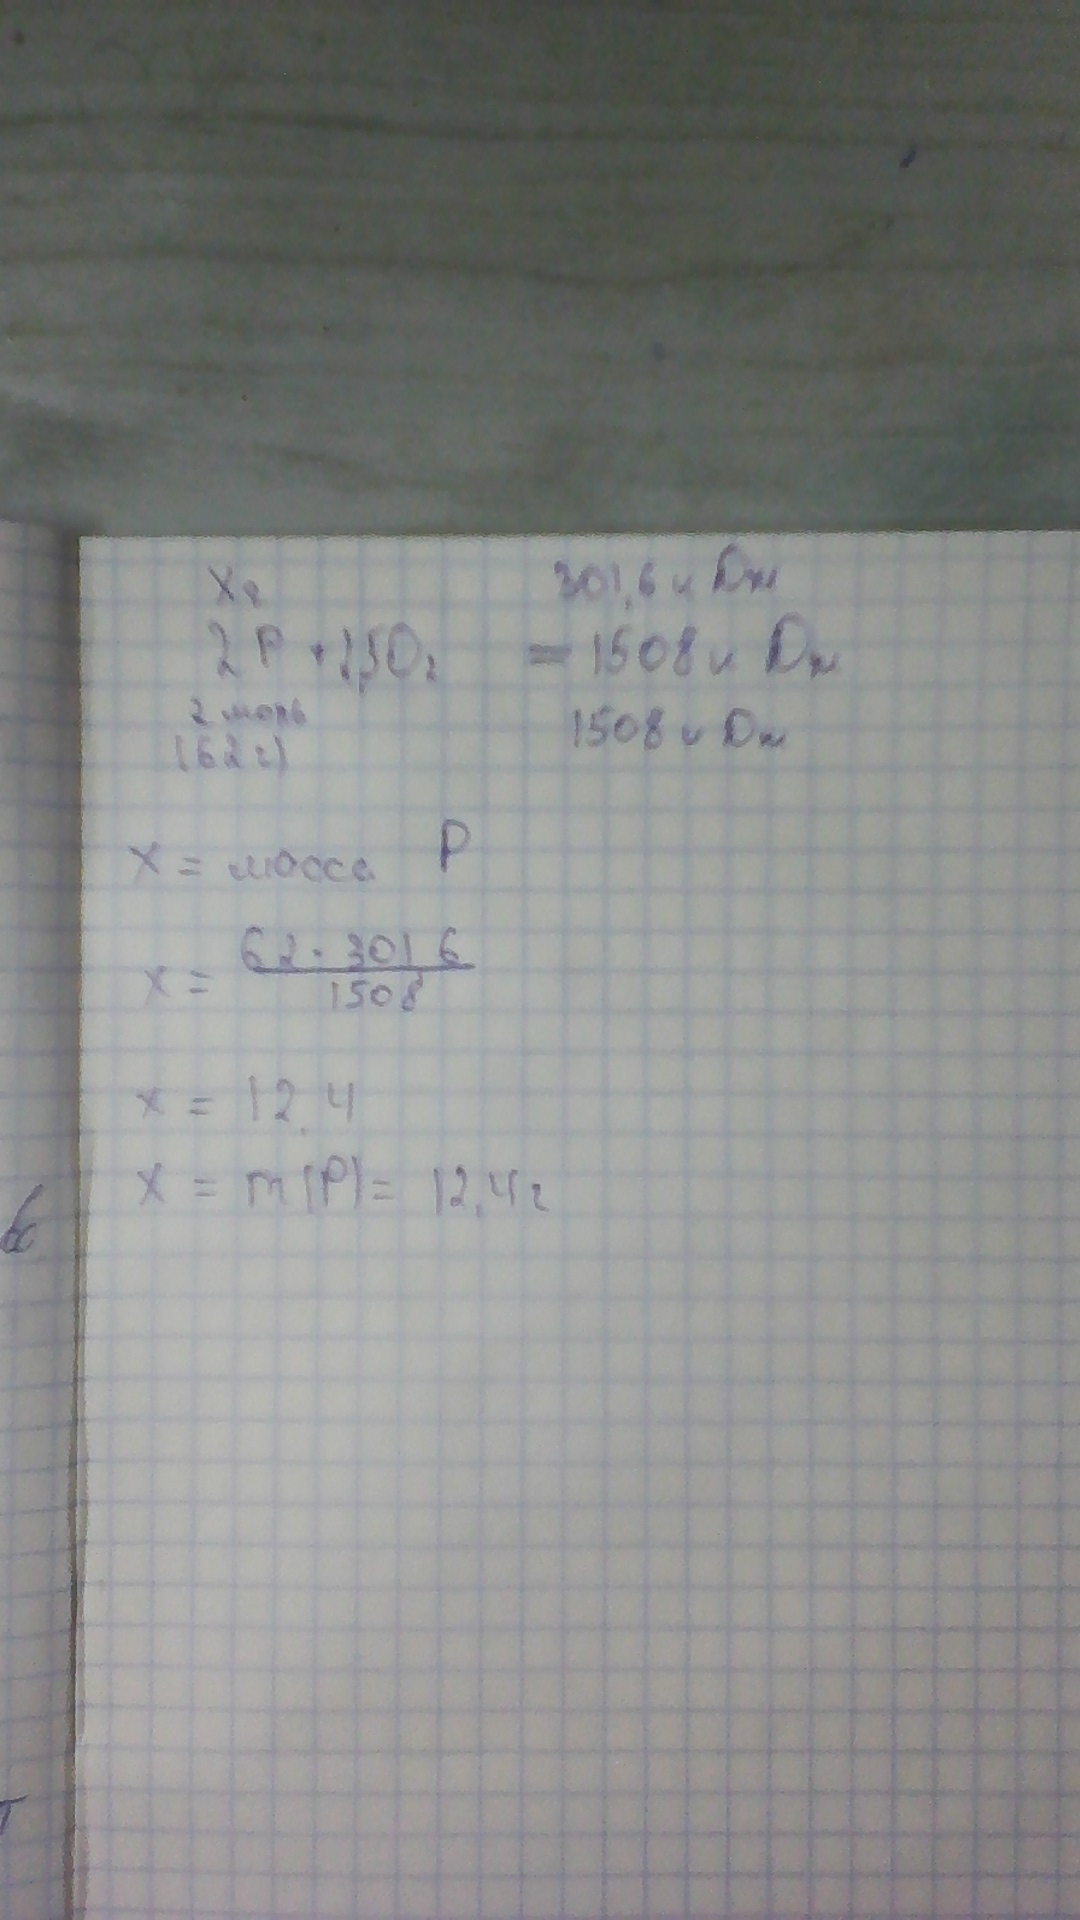 хг 301,6 кДж
2P + 2,5O₂ = 1508 кДж
2 моль 1508 кДж
(62 г)
x = масса P
x = 62 · 301,6 / 1508
x = 12,4
x = m(P) = 12,4 г